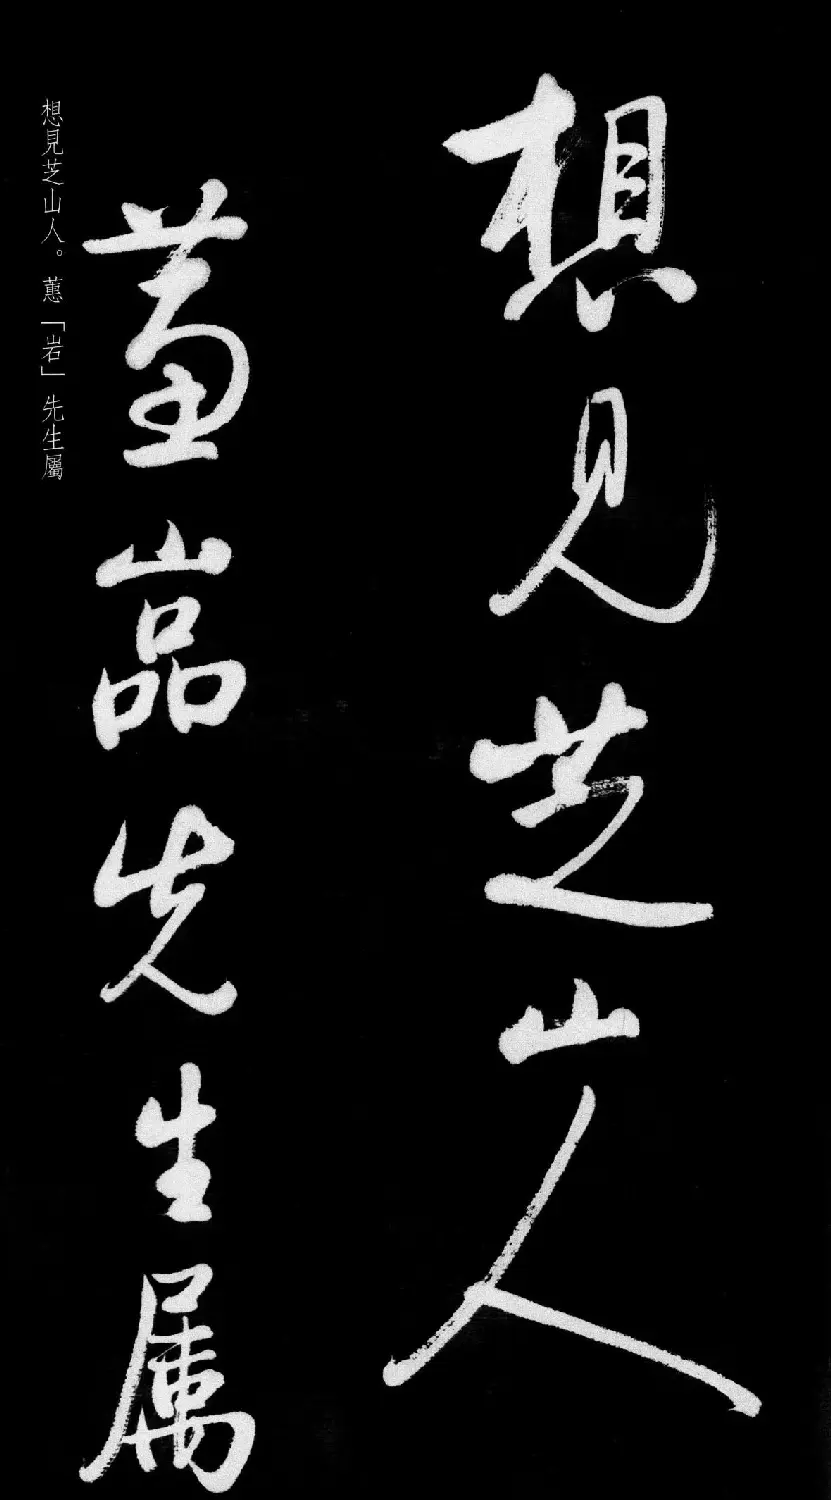 想見芝山人
蕙嵓先生属
想見芝山人。蕙「岩」先生屬